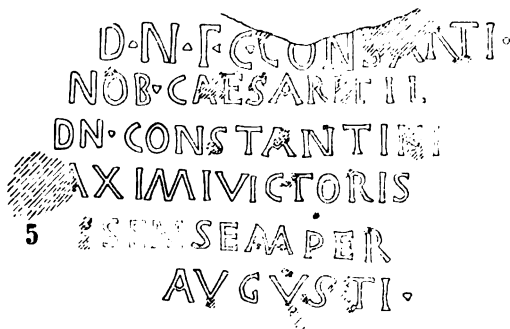 D·N·F·C·CONSTANTI·
NOB·CAESARI
DN·CONSTANTINI
AXIMIVICTORIS
5 SEMPER
AVGVSTI·